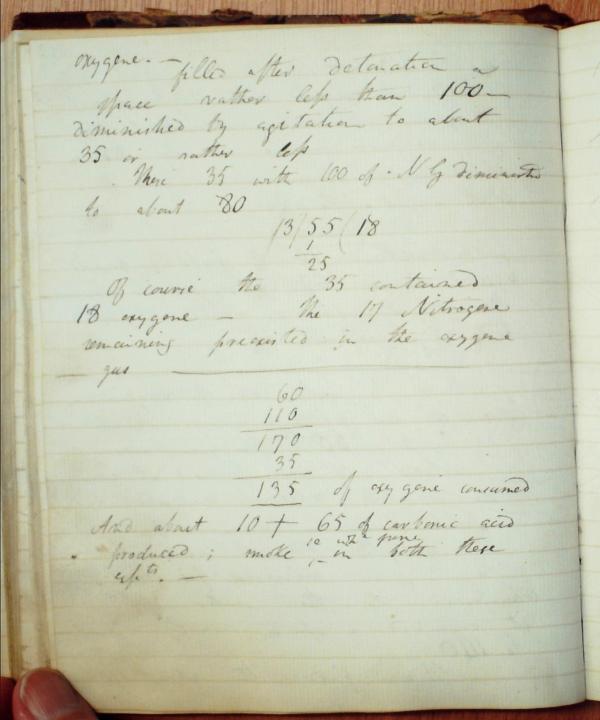 oxygene. — filled after detonation a
space rather less than 100 —
diminished by agitation to about
35 or rather less
These 35 with 100 of N G diminished
to about 80
/3/55(18
1
25
Of course the 35 contained
18 oxygene — the 17 Nitrogene
remaining preexisted in the oxygene
gas
60
110
170
35
135 of oxygene consumed
And about 10 + 65 of carbonic acid
produced; in both these
expts. —